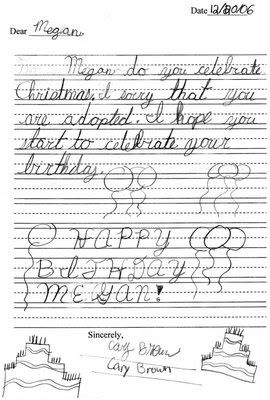 Date 12/20/06
Dear Megan,
Megan do you celebrate
Christmas, I sorry that you
are adopted. I hope you
start to celebrate your
birthday.
HAPPY
BrITHDAY
MEGAN!
Sincerely,
Cary Brown
Cary Brown